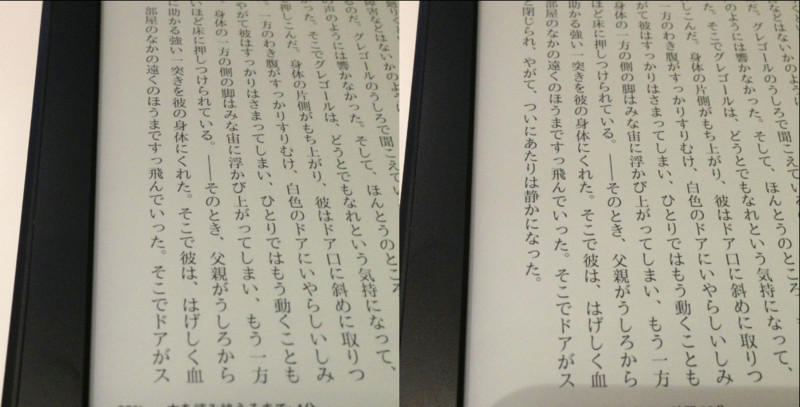 障害などはないかのように
のだ。グレゴールのうしろで聞こえてい
声のようには響かなかった。そして、ほんとうのところ
った。そこでグレゴールは、どうとでもなれという気持になって、
押しこんだ。身体の片側がもち上がり、彼はドア口に斜めに取りつ
一方のわき腹がすっかりすりむけ、白色のドアにいやらしいしみ
やがて彼はすっかりはさまってしまい、ひとりではもう動くことも
身体の一方の側の脚はみな宙に浮かび上がってしまい、もう一方
いほど床に押しつけられている。――そのとき、父親がうしろから
に助かる強い一突きを彼の身体にくれた。そこで彼は、はげしく血
部屋のなかの遠くのほうまですっ飛んでいった。そこでドアがス
などはないかのように
だ。グレゴールのうしろで聞こえてい
のようには響かなかった。そして、ほんとうのところ
た。そこでグレゴールは、どうとでもなれという気持になって、
しこんだ。身体の片側がもち上がり、彼はドア口に斜めに取りつ
一方のわき腹がすっかりすりむけ、白色のドアにいやらしいしみ
やがて彼はすっかりはさまってしまい、ひとりではもう動くことも
身体の一方の側の脚はみな宙に浮かび上がってしまい、もう一方
いほど床に押しつけられている。――そのとき、父親がうしろから
に助かる強い一突きを彼の身体にくれた。そこで彼は、はげしく血
部屋のなかの遠くのほうまですっ飛んでいった。そこでドアがス
と閉じられ、やがて、ついにあたりは静かになった。